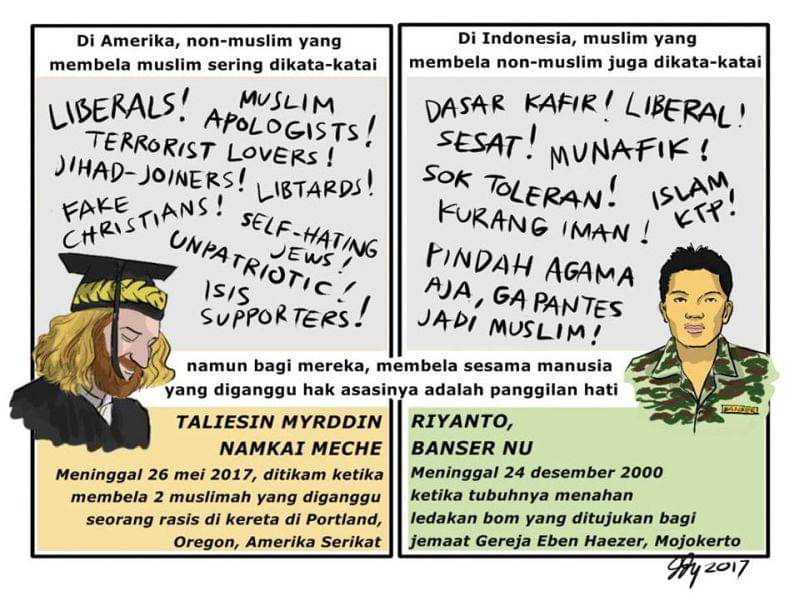 Di Amerika, non-muslim yang
membela muslim sering dikata-katai
LIBERALS!
MUSLIM
APOLOGISTS!
TERRORIST LOVERS!
JIHAD-JOINERS!
LIBTARDS!
FAKE
CHRISTIANS!
SELF-HATING
JEWS!
UNPATRIOTIC!
ISIS
SUPPORTERS!
Di Indonesia, muslim yang
membela non-muslim juga dikata-katai
DASAR KAFIR!
LIBERAL!
SESAT!
MUNAFIK!
SOK TOLERAN!
ISLAM
KTP!
KURANG IMAN!
PINDAH AGAMA
AJA, GA PANTES
JADI MUSLIM!
namun bagi mereka, membela sesama manusia
yang diganggu hak asasinya adalah panggilan hati
TALIESIN MYRDDIN
NAMKAI MECHE
Meninggal 26 mei 2017, ditikam ketika
membela 2 muslimah yang diganggu
seorang rasis di kereta di Portland,
Oregon, Amerika Serikat
RIYANTO,
BANSER NU
Meninggal 24 desember 2000
ketika tubuhnya menahan
ledakan bom yang ditujukan bagi
jemaat Gereja Eben Haezer, Mojokerto
2017